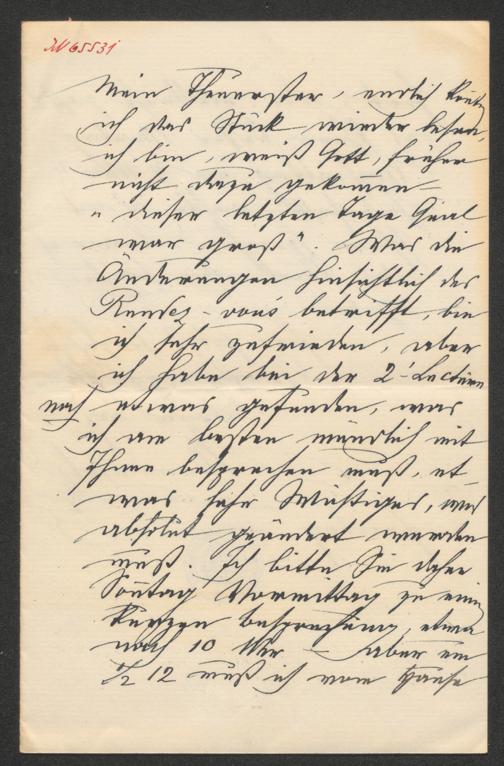 IN 65531
Mein Theuerster, endlich konnte
ich das Stück wieder lesen,
ich bin, weiß Gott, früher
nicht dazu gekommen –
"dieser letzten Tage Qual
war groß". Was die
Änderungen hinsichtlich des
Rendez-vous betrifft, bin
ich sehr zufrieden, aber
ich habe bei der 2. Lectüre
noch etwas gefunden, was
ich am besten mündlich mit
Ihnen besprechen muß, et
was sehr Wichtiges, was
absolut geändert werden
muß. Ich bitte Sie daher
Sonntag Vormittag zu einer
kurzen Besprechung, etwa
nach 10 Uhr – aber um
1/2 12 muß ich vom Hause